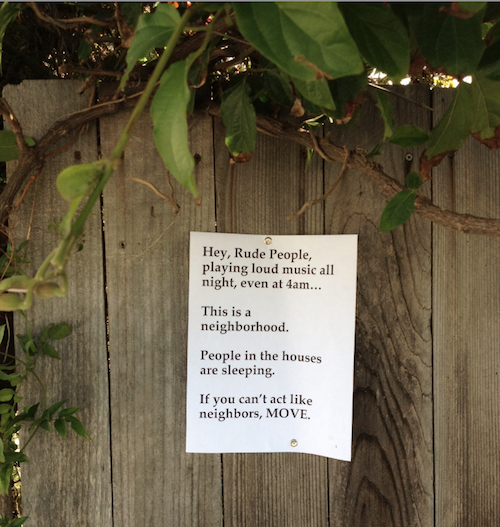 Hey, Rude People,
playing loud music all
night, even at 4am...
This is a
neighborhood.
People in the houses
are sleeping.
If you can't act like
neighbors, MOVE.